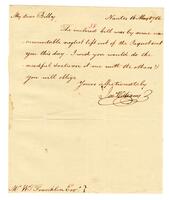 My dear Billy Nantes 16 May 1782
The inclosed bill was by some un
accountable neglect left out of the Pacquet sent
you this day. I wish you would do the
needful &
it one with the others &
you will oblige
Yours affectionately
Jon Williams
Mr W T Franklin Esqr